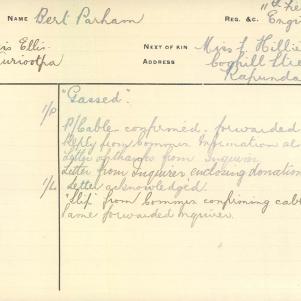 "11th Fie
NAME Bert Parham REG. &C. Engi
is Ellis NEXT OF KIN Miss L Hillie
uriootpa ADDRESS Coghill Stree
Kapunda
"Gassed".
1/P
P/Cable confirmed. forwarded
Reply from Commrs Information al
Letter of thanks from Inquirer.
Letter from Inquirer enclosing donation
1/L Letter acknowledged.
"Slip" from Commrs confirming cabl
Same forwarded Inquirer.